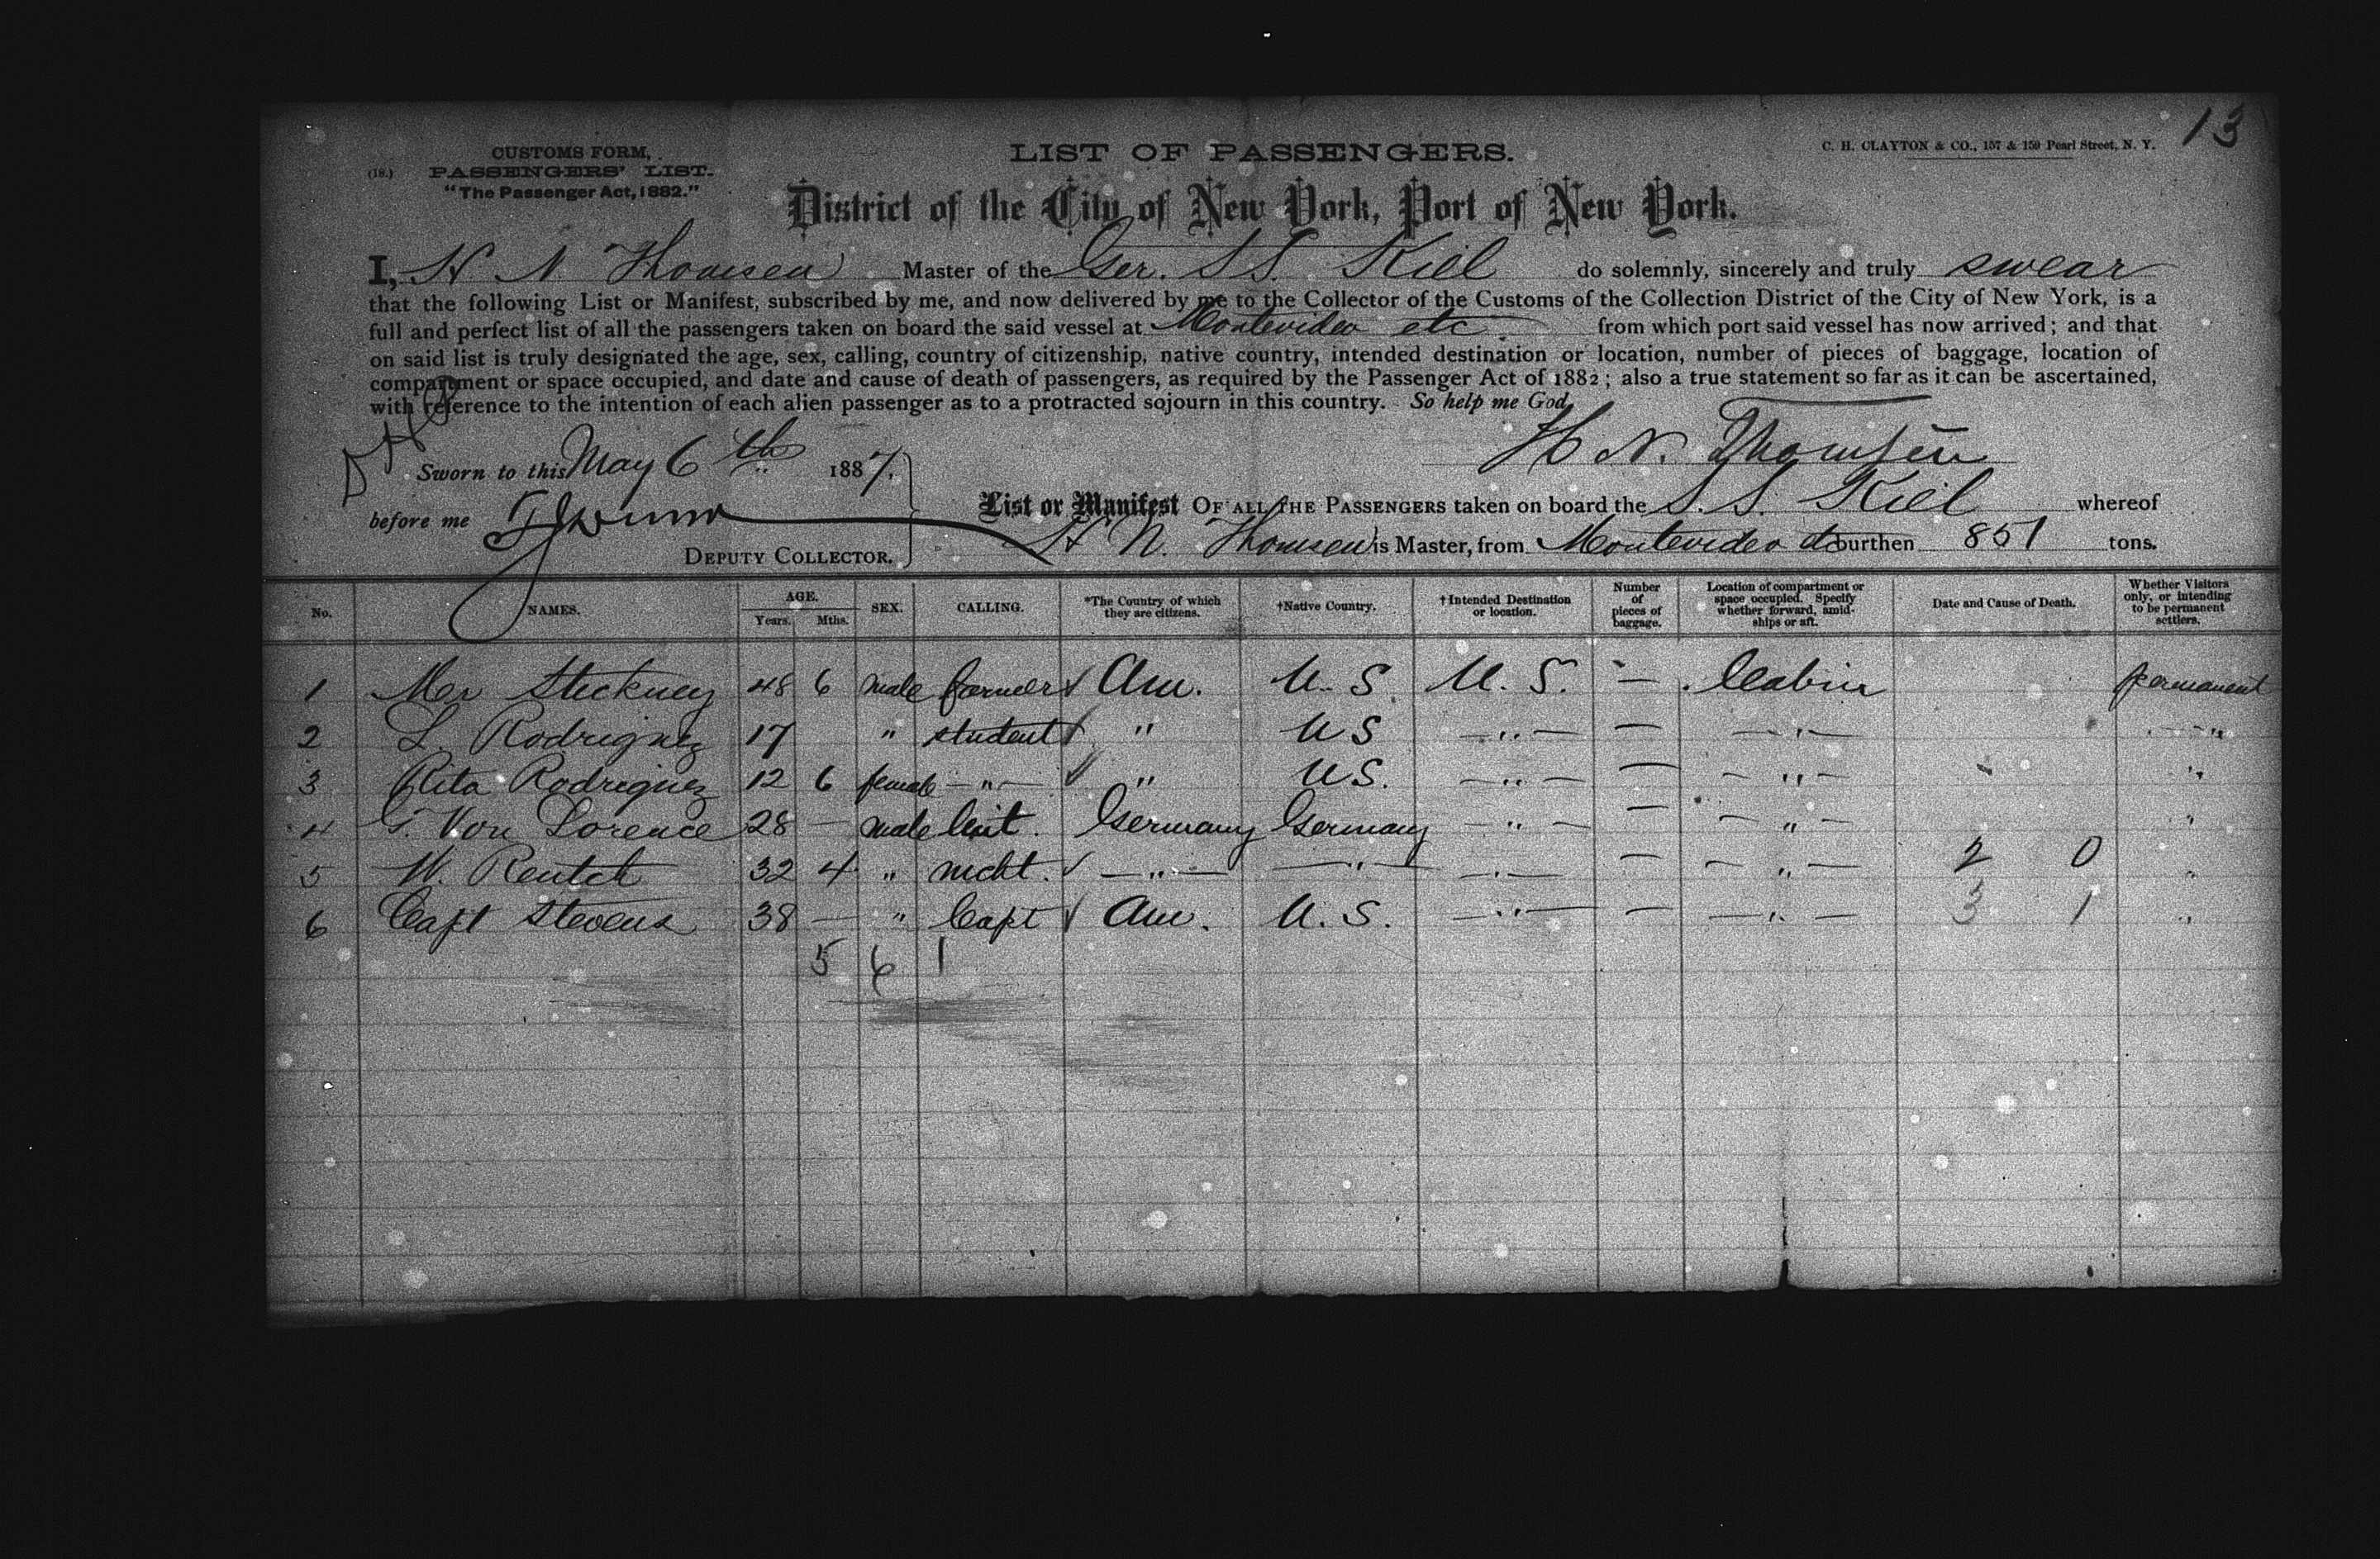 13
CUSTOMS FORM,
(18.) PASSENGERS' LIST.
"The Passenger Act, 1882."
LIST OF PASSENGERS.
C. H. CLAYTON & CO., 157 & 159 Pearl Street, N. Y.
District of the City of New York, Port of New York.
I, H N Thomsen Master of the Ger. S S. Kiel do solemnly, sincerely and truly swear
that the following List or Manifest, subscribed by me, and now delivered by me to the Collector of the Customs of the Collection District of the City of New York, is a
full and perfect list of all the passengers taken on board the said vessel at Montevideo etc from which port said vessel has now arrived; and that
on said list is truly designated the age, sex, calling, country of citizenship, native country, intended destination or location, number of pieces of baggage, location of
compartment or space occupied, and date and cause of death of passengers, as required by the Passenger Act of 1882; also a true statement so far as it can be ascertained,
with reference to the intention of each alien passenger as to a protracted sojourn in this country. So help me God
H N. Thomsen
Sworn to this May 6th 1887.
before me
DEPUTY COLLECTOR.
List or Manifest OF ALL THE PASSENGERS taken on board the S. S. Kiel whereof
H N. Thomsen is Master, from Montevideo etc burthen 851 tons.
No. NAMES. AGE. Years. Mths. SEX. CALLING. *The Country of which they are citizens. †Native Country. †Intended Destination or location. Number of pieces of baggage. Location of compartment or space occupied. Specify whether forward, amidships or aft. Date and Cause of Death. Whether Visitors only, or intending to be permanent settlers.
1 Mr Stickney 48 6 male farmer ✓ Am. U. S. U. S. — Cabin permanent
2 L. Rodriguez 17 " student ✓ " U S —"— — —"— "
3 Rita Rodriguez 12 6 female —"— ✓ " U S. —"— — —"— "
4 G. Von Lorence 28 — male Germany Germany —"— — —"— "
5 W. Rentch 32 4 " ✓ —"— —"— —"— — —"— 2 0 "
6 Capt Stevens 38 — " Capt ✓ Am. U. S. —"— — —"— 3 1 "
5 6 1